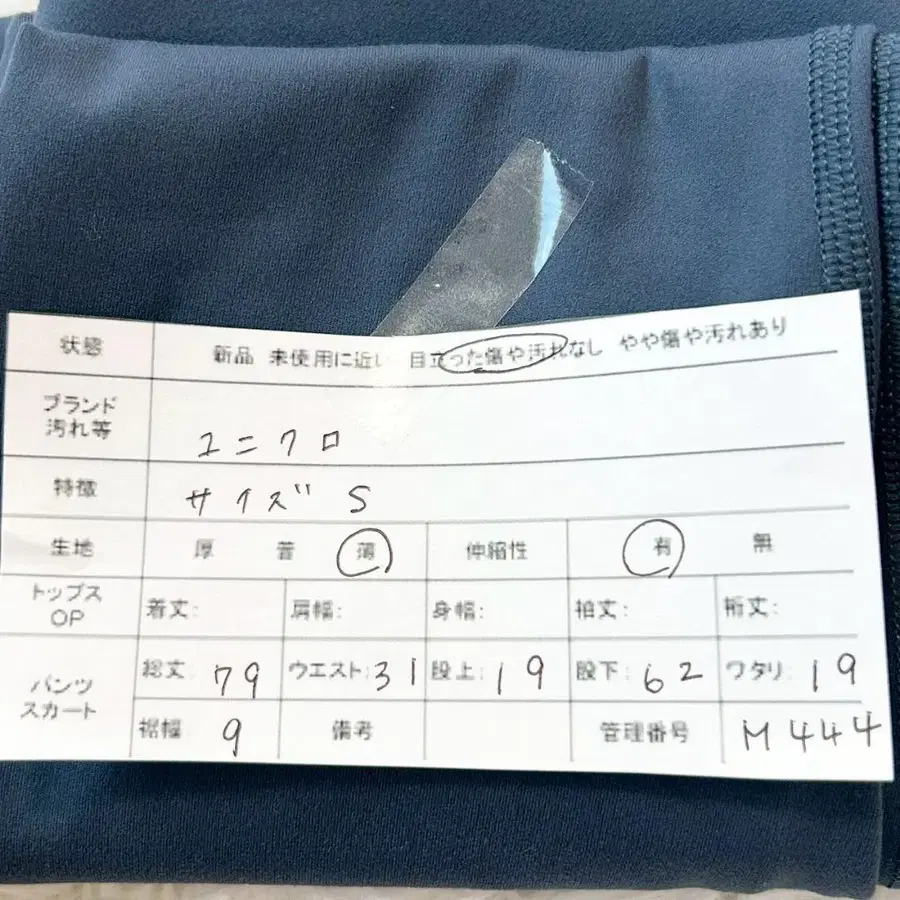 状態 新品 未使用に近い 目立った傷や汚れなし やや傷や汚れあり
ブランド
汚れ等
ユニクロ
特徴 サイズ S
生地 厚 普 薄 伸縮性 有 無
トップス
OP
着丈: 肩幅: 身幅: 袖丈: 裄丈:
パンツ
スカート
総丈: 79 ウエスト: 31 股上: 19 股下: 62 ワタリ: 19
裾幅 9 備考 管理番号 M444